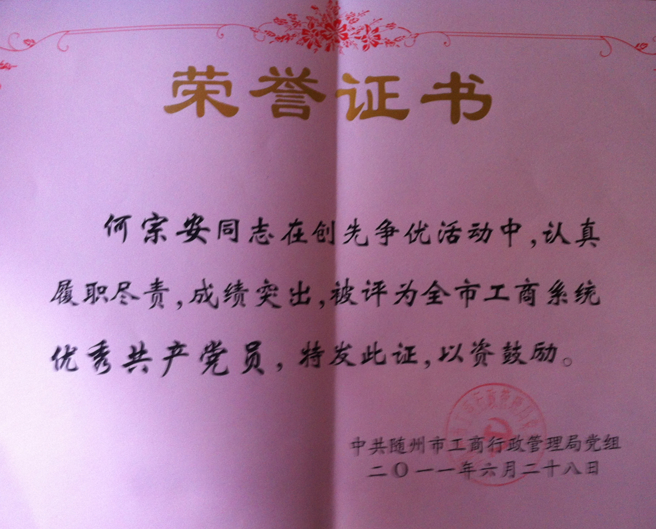 荣誉证书
何宗安同志在创先争优活动中,认真
履职尽责,成绩突出,被评为全市工商系统
优秀共产党员,特发此证,以资鼓励。
中共随州市工商行政管理局党组
二〇一一年六月二十八日